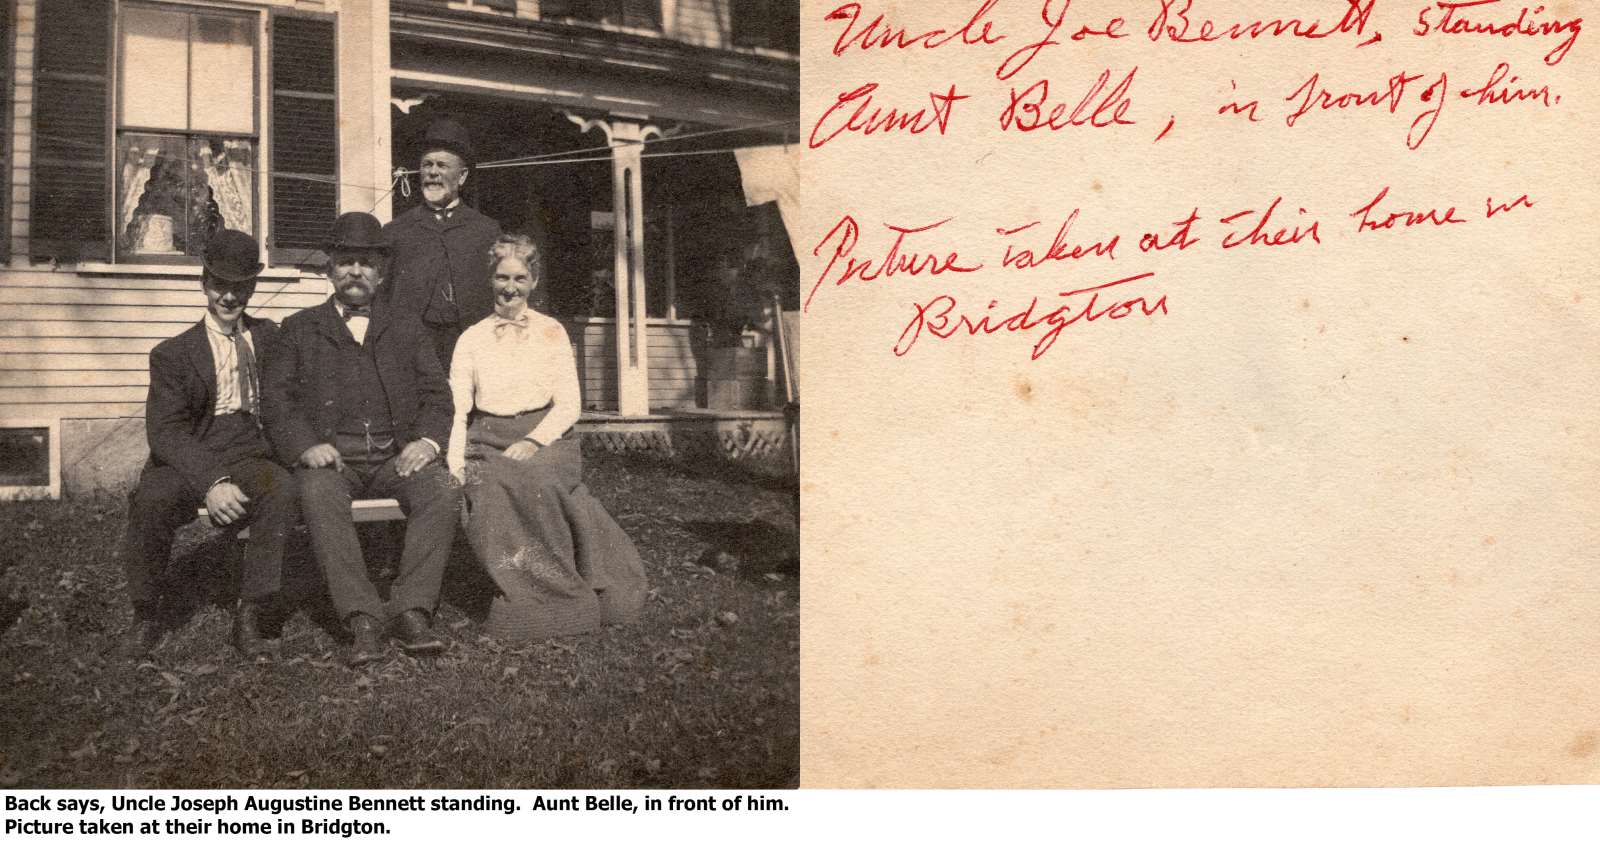 Uncle Joe Bennett, standing
Aunt Belle, in front of him.
Picture taken at their home in
Bridgton
Back says, Uncle Joseph Augustine Bennett standing.  Aunt Belle, in front of him.
Picture taken at their home in Bridgton.